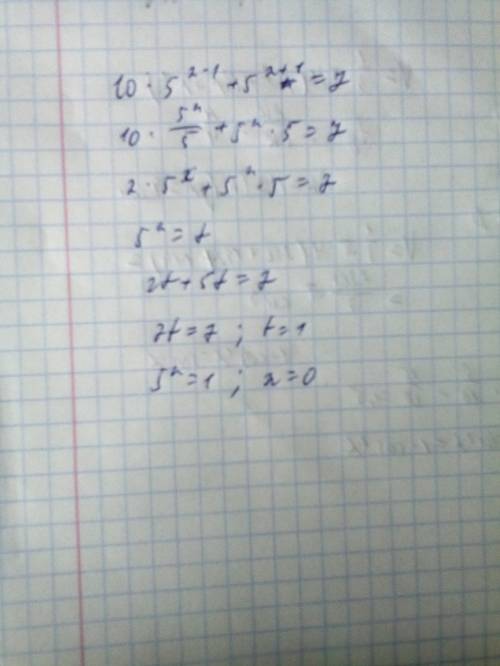 10 · 5^{x-1} + 5^{x+1} = 7
10 · \frac{5^x}{5} + 5^x · 5 = 7
2 · 5^x + 5^x · 5 = 7
5^x = t
2t + 5t = 7
7t = 7 ; t = 1
5^x = 1 ; x = 0